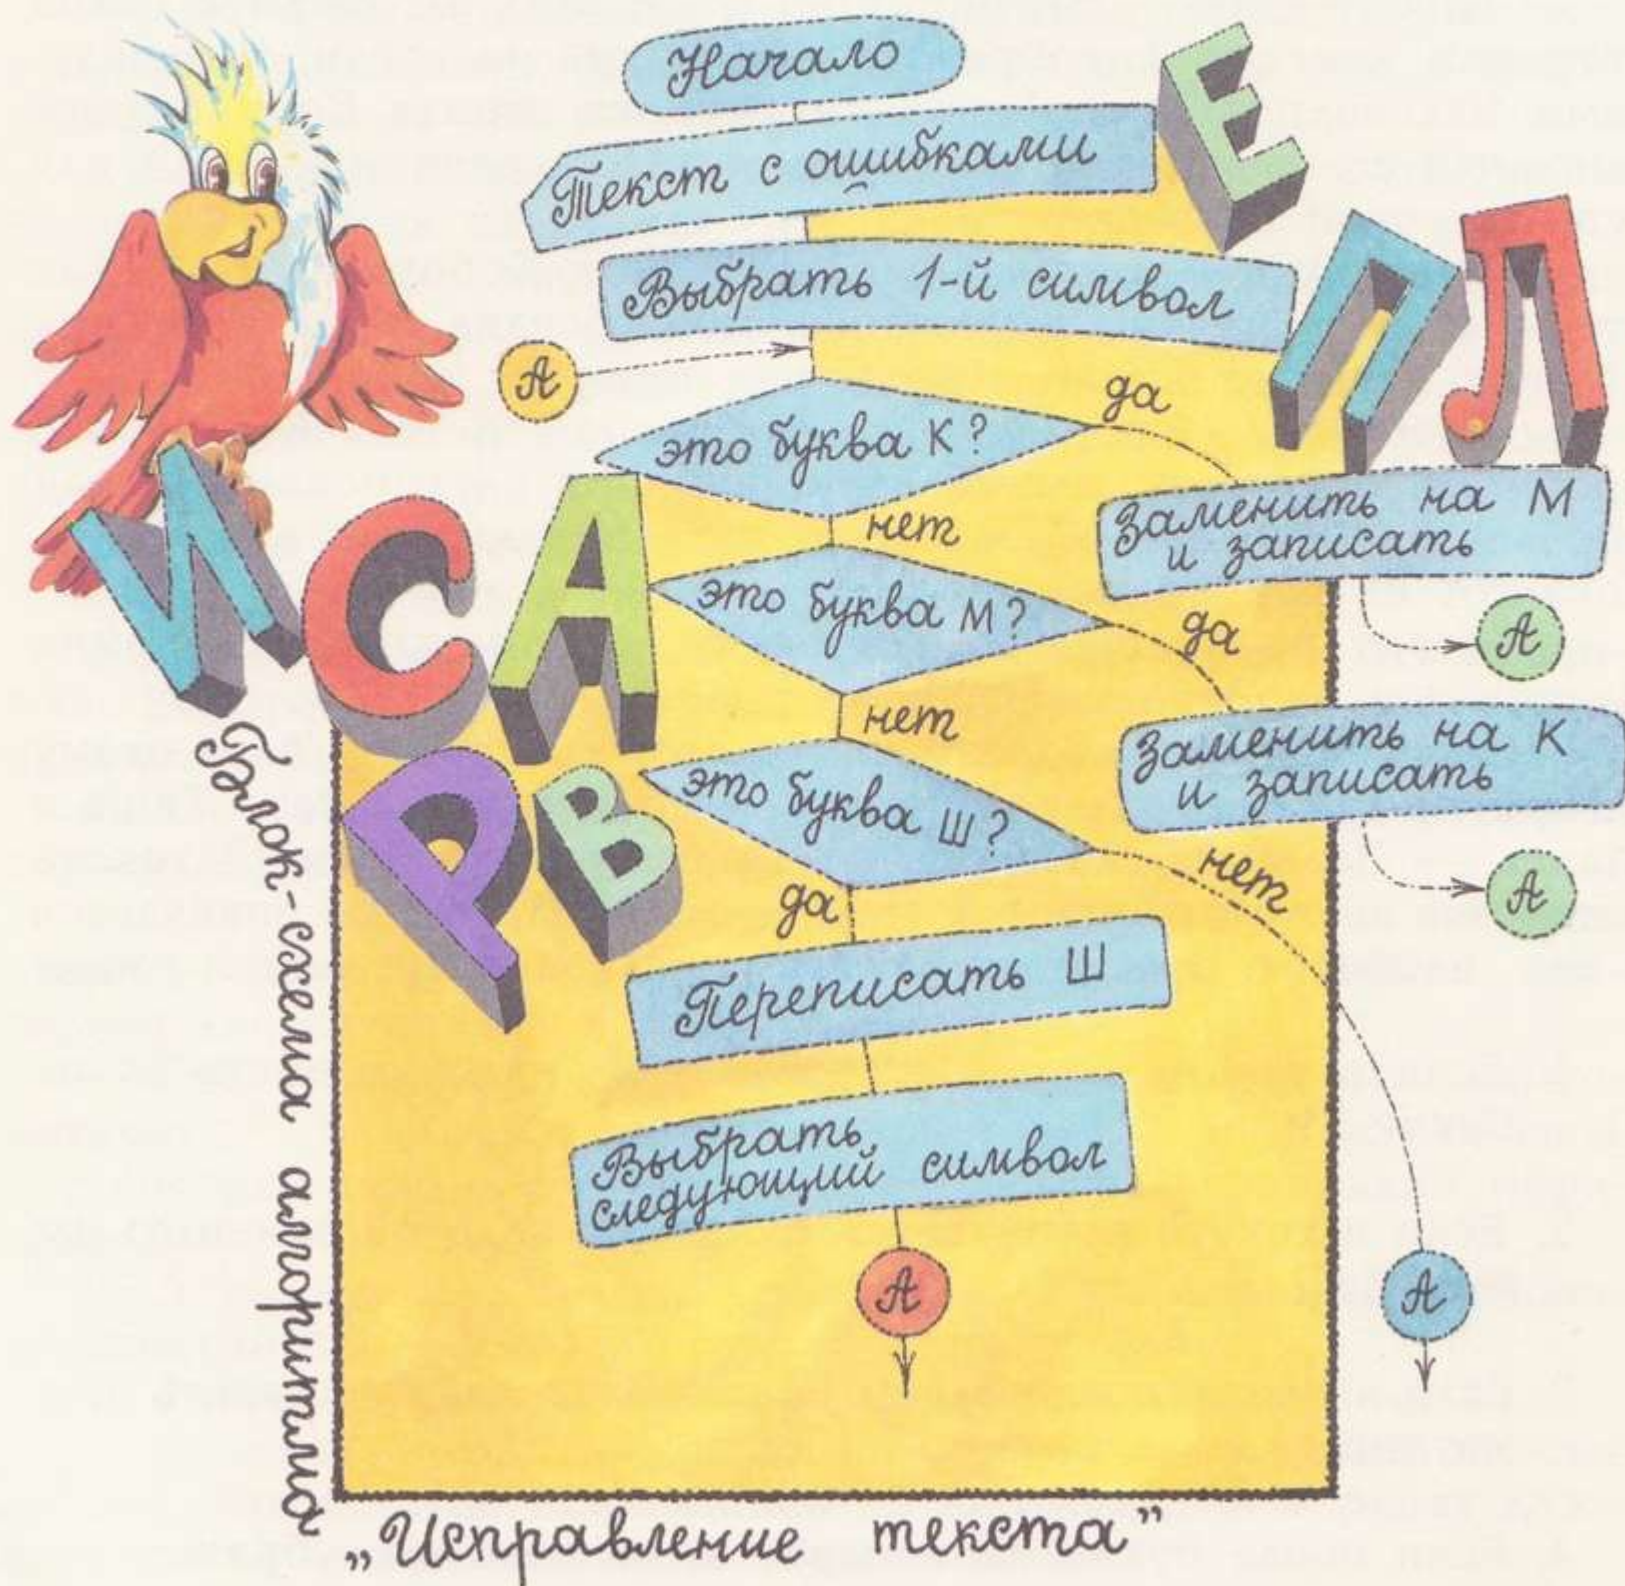 Начало
Текст с ошибками
Выбрать 1-й символ
А
это буква К?
да
Заменить на М
и записать
А
нет
это буква М?
да
Заменить на К
и записать
А
нет
это буква Ш?
нет
да
Переписать Ш
Выбрать
следующий символ
А
А
Е
П Л
И С А
Р В
Блок-схема алгоритма
„Исправление текста”